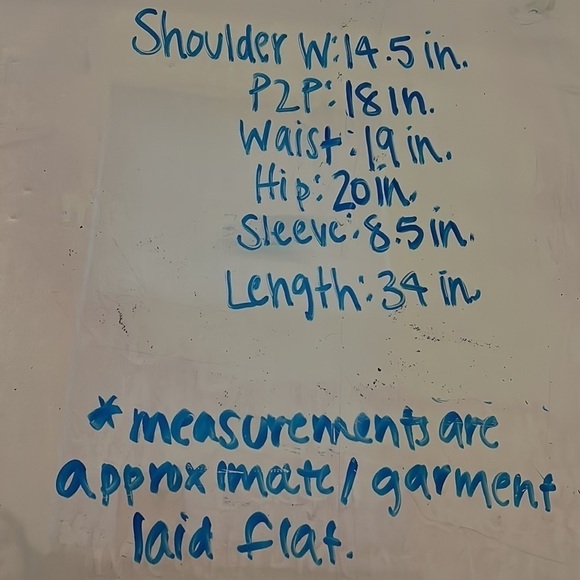 Shoulder W: 14.5 in.
P2P: 18 in.
Waist: 19 in.
Hip: 20 in.
Sleeve: 8.5 in.
Length: 34 in.
* measurements are
approximate / garment
laid flat.